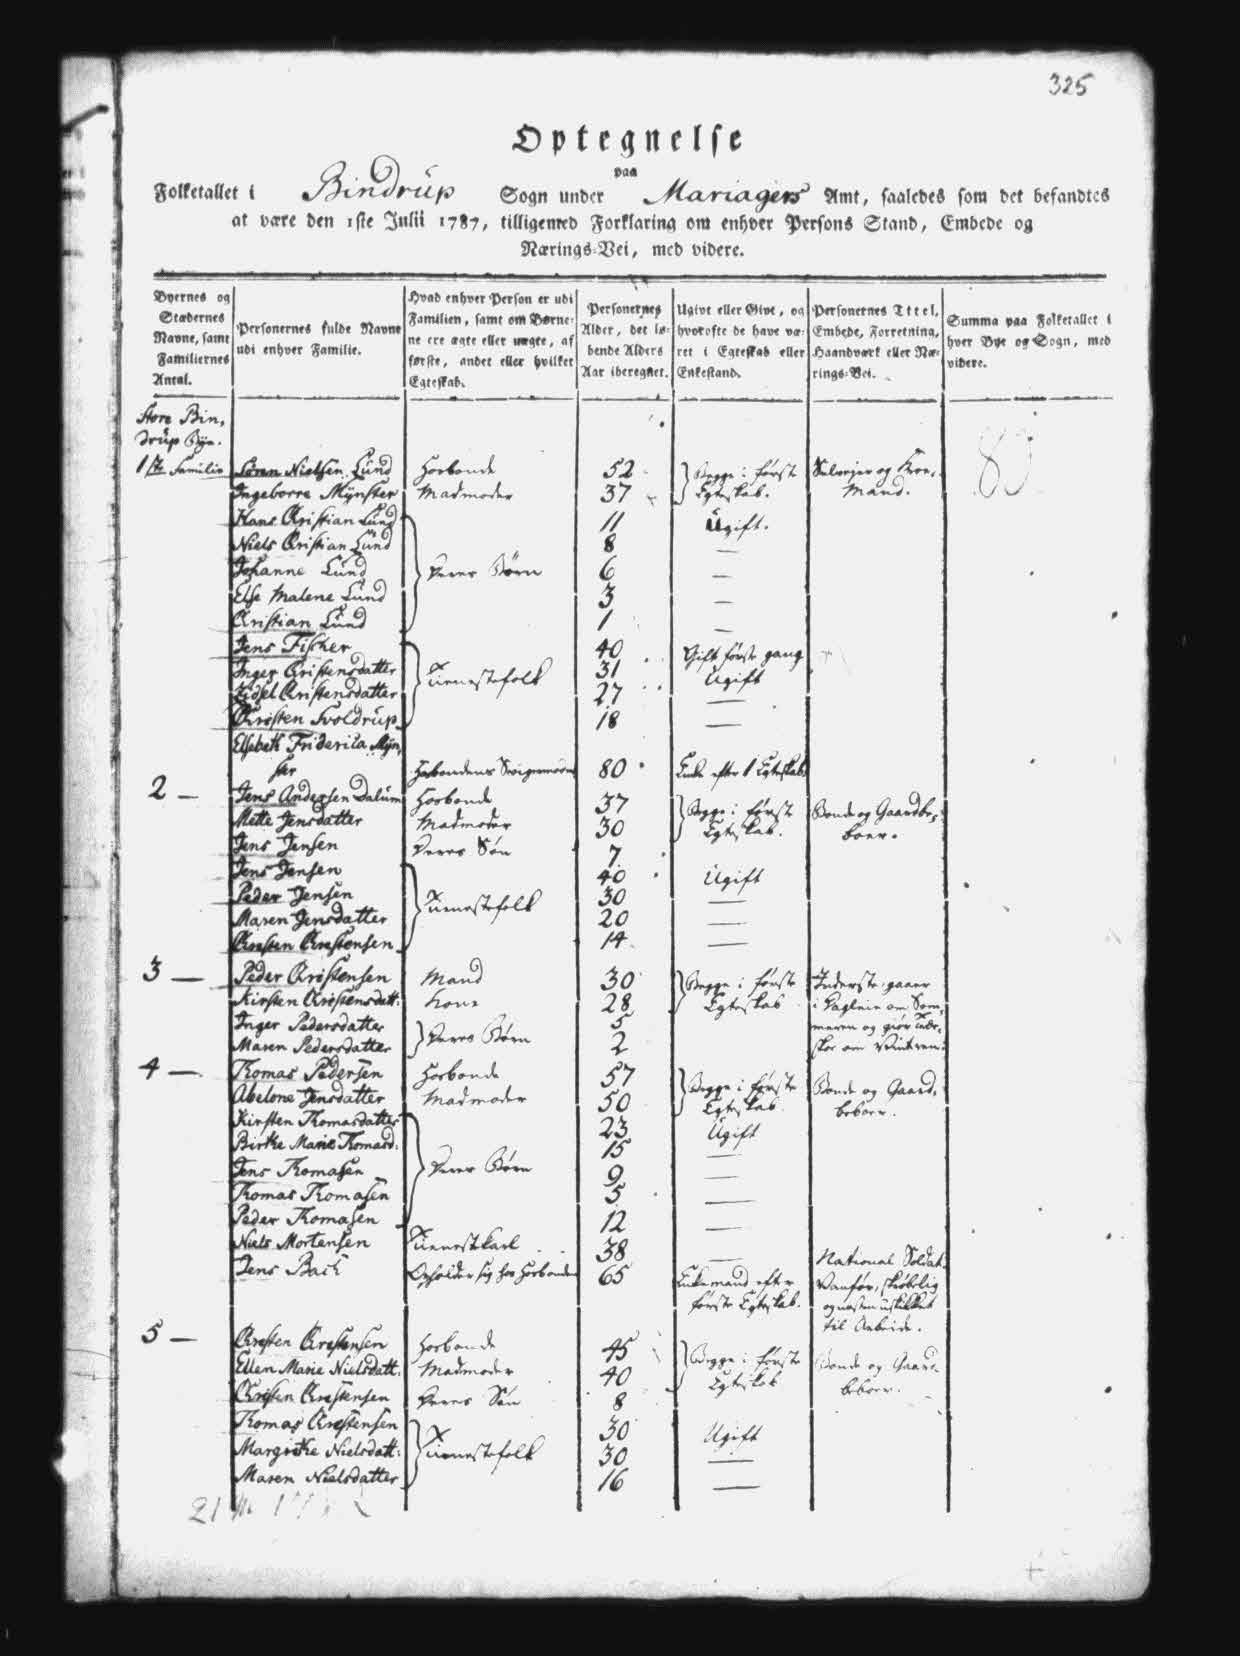 325
Optegnelse
paa
Folketallet i Bindrup Sogn under Mariagers Amt, saaledes som det befandtes
at være den 1ste Julii 1787, tilligemed Forklaring om enhver Persons Stand, Embede og
Nærings-Vei, med videre.
Byernes og Stædernes Navne, samt Familiernes Antal.
Personernes fulde Navne udi enhver Familie.
Hvad enhver Person er udi Familien, samt om Børnene ere ægte eller uægte, af første, andet eller hvilket Egteskab.
Personernes Alder, det løbende Alders Aar iberegnet.
Ugivt eller Givt, og hvorofte de have været i Egteskab eller Enkestand.
Personernes Titel, Embede, Forretning, Haandværk eller Nærings-Vei.
Summa paa Folketallet i hver Bye og Sogn, med videre.
Store Bin,
drup Bye.
1ste Familie Søren Nielsen Lund Hosbonde 52 Begge i første Selveier og Kroe,
Ingeborre Mynster Madmoder 37 Egteskab. Mand.
Hans Christian Lund 11 Ugift.
Niels Christian Lund 8 —
Johanne Lund Deres Børn 6 —
Else Malene Lund 3 —
Christian Lund 1 —
Jens Fischer 40 Gift første gang
Inger Christensdatter Tienestefolk 31 Ugift
Zidsel Christensdatter 27 —
Christen Svoldrup 18 —
Elsebeth Friderica Myn,
ster Hosbondens Svigermoder 80 Enke efter 1 Egteskab
2 — Jens Andersen Dalum Hosbonde 37 Begge i første Bonde og Gaardbe,
Mette Jensdatter Madmoder 30 Egteskab. boer.
Jens Jensen Deres Søn 7
Jens Jensen 40 Ugift
Peder Jensen Tienestefolk 30 —
Maren Jensdatter 20 —
Chresten Chrestensen 14 —
3 — Peder Christensen Mand 30 Begge i første Inderste gaaer
Kirsten Christensdatt: Kone 28 Egteskab i Dagleie om Som,
Inger Pedersdatter Deres Børn 5 meren og giør Træe,
Maren Pedersdatter 2 skoe om Vinteren.
4 — Thomas Pedersen Hosbonde 57 Begge i første Bonde og Gaard,
Abelone Jensdatter Madmoder 50 Egteskab beboer.
Kirsten Thomasdatter 23 Ugift
Birthe Marie Thomasd: 15 —
Jens Thomasen Deres Børn 9 —
Thomas Thomasen 5 —
Peder Thomasen 12 —
Niels Mortensen Tienestekarl 38 — National Soldat.
Jens Bach Opholder sig hos Hosbonden 65 Enkemand efter Vanfør, skrøbelig
første Egteskab. og næsten uskikket
til Arbeide.
5 — Chresten Chrestensen Hosbonde 45 Begge i første Bonde og Gaard,
Ellen Marie Nielsdatt: Madmoder 40 Egteskab beboer.
Christen Chrestensen Deres Søn 8
Thomas Chrestensen 30 Ugift
Margrethe Nielsdatt: Tienestefolk 30 —
Maren Nielsdatter 16 —